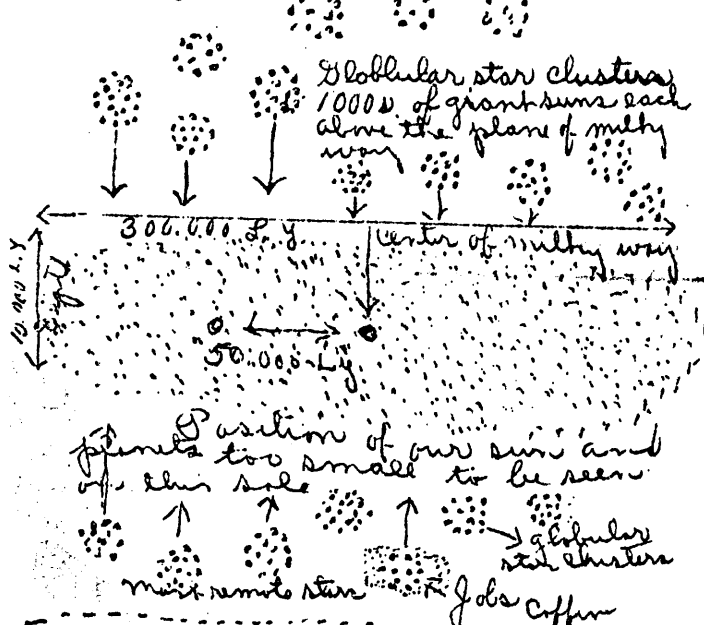 Globlular star clusters
1000s of giant suns each
above the plane of milky
way
300.000 L. Y
center of milky way
10.000 L.Y
50.000 L y
Position of our sun and
planets too small to be seen
on this sale
globular
star clusters
most remote stars
Jobs Coffin